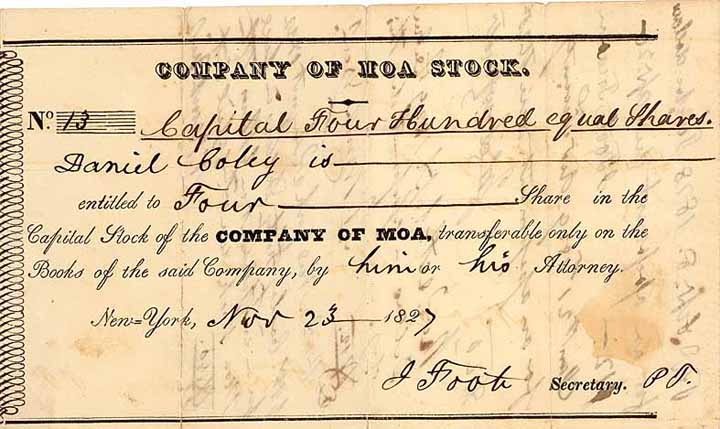 COMPANY OF MOA STOCK.
No. 13 Capital Four Hundred equal Shares.
Daniel Coley is
entitled to Four Share in the
Capital Stock of the COMPANY OF MOA, transferable only on the
Books of the said Company, by him or his Attorney.
New=York, Nov 23 1827
J Foot Secretary. P T.